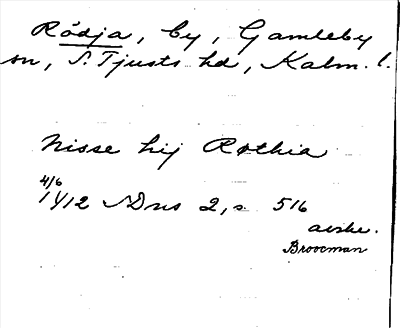 Rödja, by, Gamleby
sn, S. Tjusts hd, Kalm. l.
Nisse hij Røthia
4/6
1412 SDns 2, s. 516
avskr.
Broocman